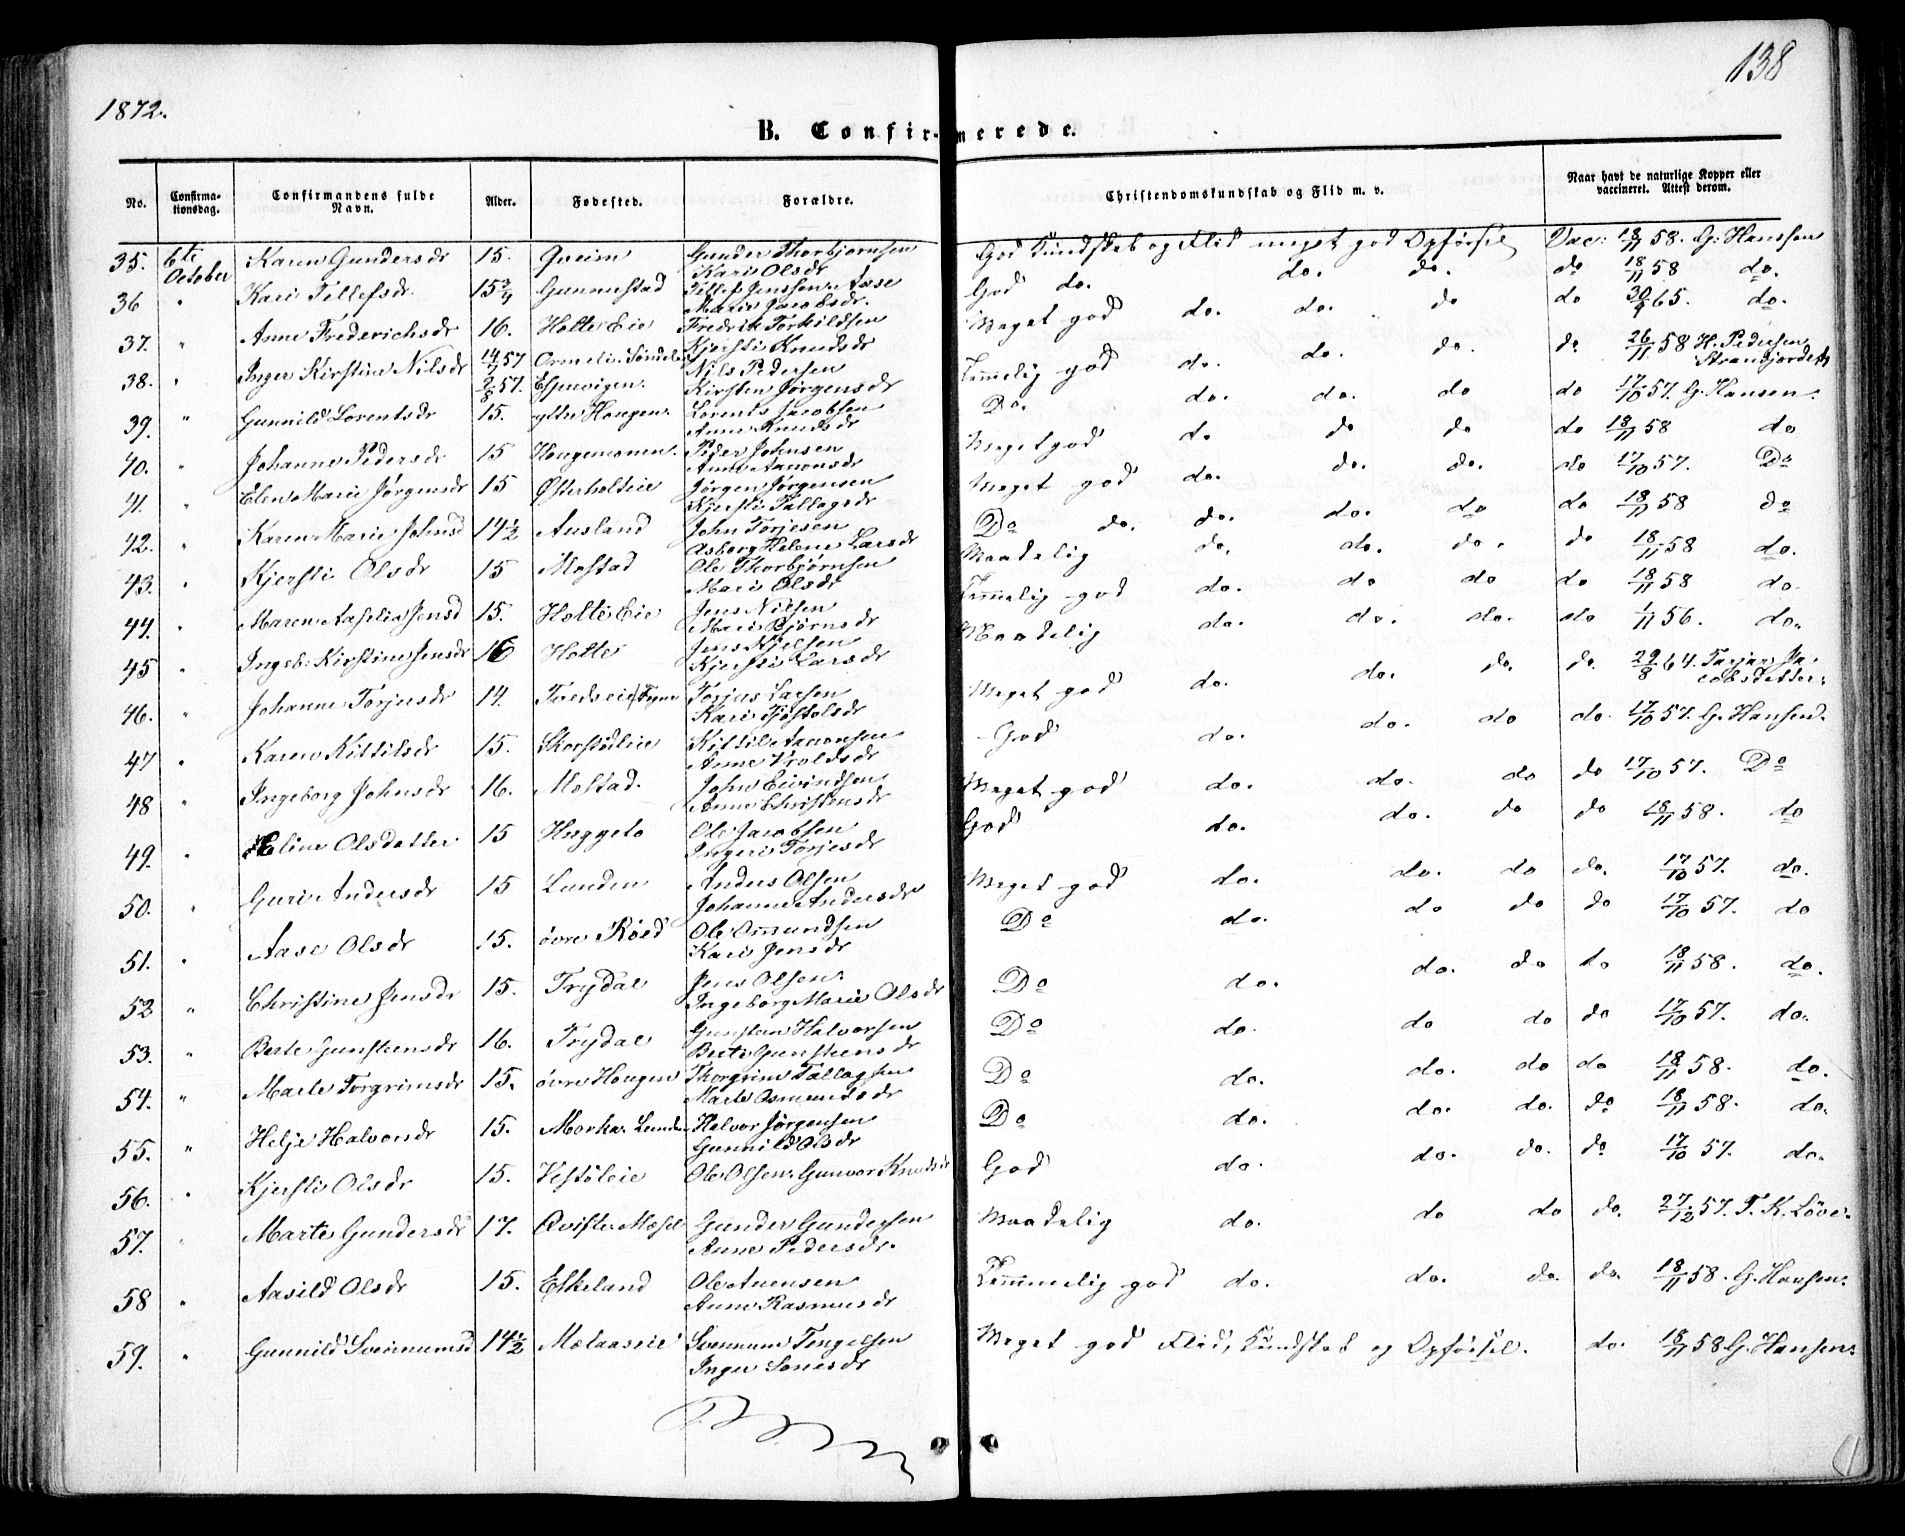 138
1872.
B. Confirmerede.
No. Confirmationsdag. Confirmandens fulde Navn. Alder. Fødested. Forældre. Christendomskundskab og Flid m. v. Naar havt de naturlige Kopper eller vaccineret. Attest derom.
35. 6te October Karen Gundersdr 15. Qveim Gunder Thorbjørnsen God Kundskab og Flid meget god Opførsel Vac: 18/11 58. G. Hanssen
Kari Olsdr
36 " Kari Tellefsdr. 15 3/4 Gunnestad Tellef Jenssen Aase God do. do. do. do 18/11 58 do.
Maria Jacobsdr.
37. " Anne Frederichsdr 16. Holte Eie Fredrik Terkildsen Meget god do. do. do do 30/9 65. do.
Kjersti Knudsdr
38. " Inger Kirstine Nilsdr 14/7 57 Ormelie Søndeled Nils Pedersen Temmelig god do. do. do. do 26/11 58 H. Pedersen
2/8 57. Espevigen. Kirsten Jørgensdr
39. " Gunnild Lorentsdr 15. ytre Hougen Lorents Jacobsen Do. do. do. do do 17/10 57. G. Hansen.
Anne Knudsdr
40. " Johanne Pedersdr 15 Hougemonen. Peder Johnsen Meget god do do do do 18/11 58 do
Anne Aanonsdr
41. " Elen Marie Jørgensdr 15 Østerholteie Jørgen Jørgensen Meget god do. do. do. do 17/10 57. Do
Kjersti Tallagsdr
42. " Karen Marie Johnsd 14 1/2 Ausland John Torjesen Do do. do. do. do do 18/11 58 do
Asborg Helene Larsdr
43. " Kjersti Olsdr 15 Mostad Ole Thorbjørnsen Maadelig do. do. do. do 18/11 58 do.
Mari Olsdr
44. " Maren Aaselia Jensd 15. Holte Eie Jens Nilsen Temmelig god do. do do do 18/11 58 do.
Mari Bjørnsdr
45 " Ingeb: Kirstine Jensdr 16 Holte Jens Kjelsen Maadelig do. do. do. do 1/11 56. do.
Kjersti Larsdr
46. " Johanne Torjusdr 14. Torjus Larsen Meget god do. do. do. do. 29/8 64. Torjer Ja-
Kari Tjøstolsdr cobsdatter.
47 " Karen Kittilsdr 15. Skorstølleie Kittil Aanonsen God do. do. do do. 17/10 57. G. Hansen.
Anne Vroldsdr
48 " Ingeborg Johnsdr 16. Mostad. John Eivindsen Meget god do. do. do do 17/10 57. Do
Anne Christensdr
49. " Eline Olsdatter 15 Huggeto Ole Jacobsen God do. do. do do 18/11 58. do
Ingeri Torjesdr
50. " Guri Andersdr 15 Lunden Anders Olsen Meget god do. do. do do. 17/10 57. do.
Johanne Andersdr
51. " Aase Olsdr 15. øvre Røed Ole Osmundsen Do do. do do do 17/10 57. do
Kari Jensdr
52 " Christine Jensdr 15. Trydal Jens Olsen. Do do. do. do do 18/11 58. do.
Ingeborg Marie Olsdr
53. " Berte Gunsteensdr 16. Trydal Gunsten Halvorsen Do do. do do do 17/10 57. do.
Berte Gunsteensdr
54. " Marte Torgrimsdr 15. øvre Hougen Thorgrim Tallagsen Do do. do. do do 18/11 58. do.
Marte Osmundsdr
55. " Helje Halvorsdr 15. Morka Lunden Halvor Jørgensen Do do. do. do. do 18/11 58. do.
Gunnild Olsdr
56. " Kjersti Olsdr 15. Vestøleie Ole Olsen. Gunvor Knudsdr God do. do. do. do 17/10 57. do.
57. " Marte Gundersdr 17. Gunder Gundersen Maadelig do. do do do. 27/12 57. T. K. Løve.
Anne Pedersdr.
58 " Aasild Olsdr 15. Eskeland Ole Anensen Temmelig god do. do. do. do. 18/11 58. G. Hansen.
Anne Rasmusdr
59. " Gunnild Svennumsd 14 1/2 Mælaaseie Svennum Tengelsen Meget god Flid, Kundskab og Opførsel. do. 18/11 58 G. Hansen.
Inger Sonesdr